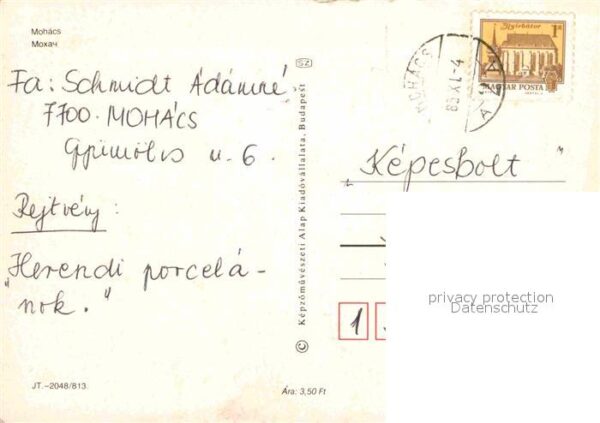 Mohács
Мохач
Fa: Schmidt Ádámné
7700. MOHÁCS
u. 6.
Rejtvény:
„Herendi porcelá-
nok."
JT.-2048/813.
Ára: 3,50 Ft
© Képzőművészeti Alap Kiadóvállalata, Budapest
SZ
MOHÁCS
83 XI.-4
Nyírbátor
1 Ft
MAGYAR POSTA
„Képesbolt"
1
privacy protection
Datenschutz